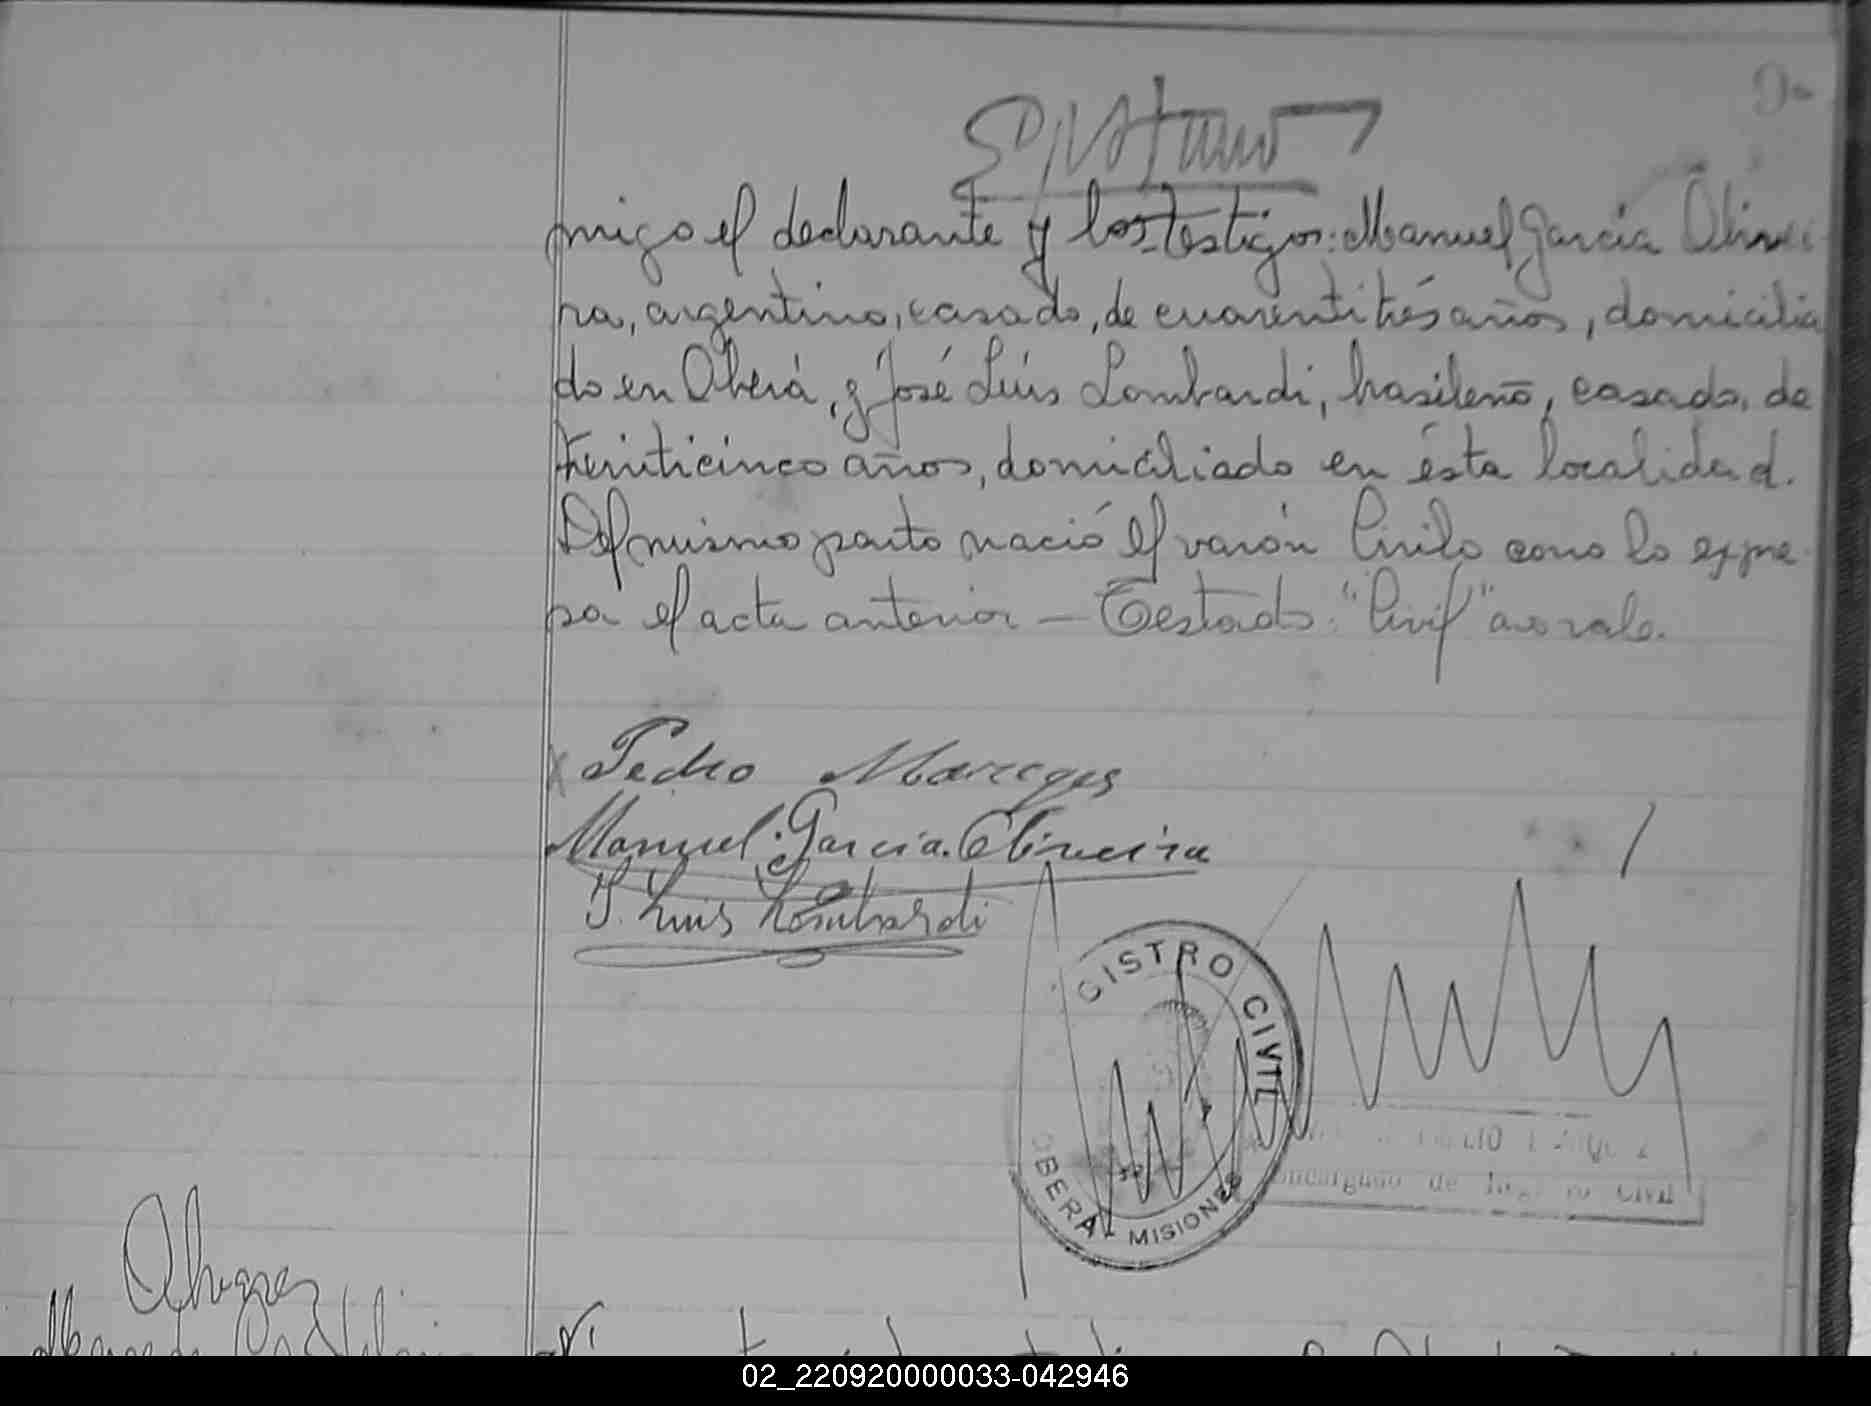 migo el declarante y los testigos: Manuel García Olivei
ra, argentino, casado, de cuarentitrés años, domicilia
do en Oberá, y José Luís Lombardi, brasileño, casado, de
treinticinco años, domiciliado en ésta localidad.
Del mismo parto nació el varón Cirilo como lo expre
sa el acta anterior — Testado: "Civil" no vale.
Pedro Marcegas
Manuel García Oliveira
J. Luis Lombardi
GISTRO CIVIL
OBERA - MISIONES
Encargado de Registro Civil
Alvarez
02_220920000033-042946